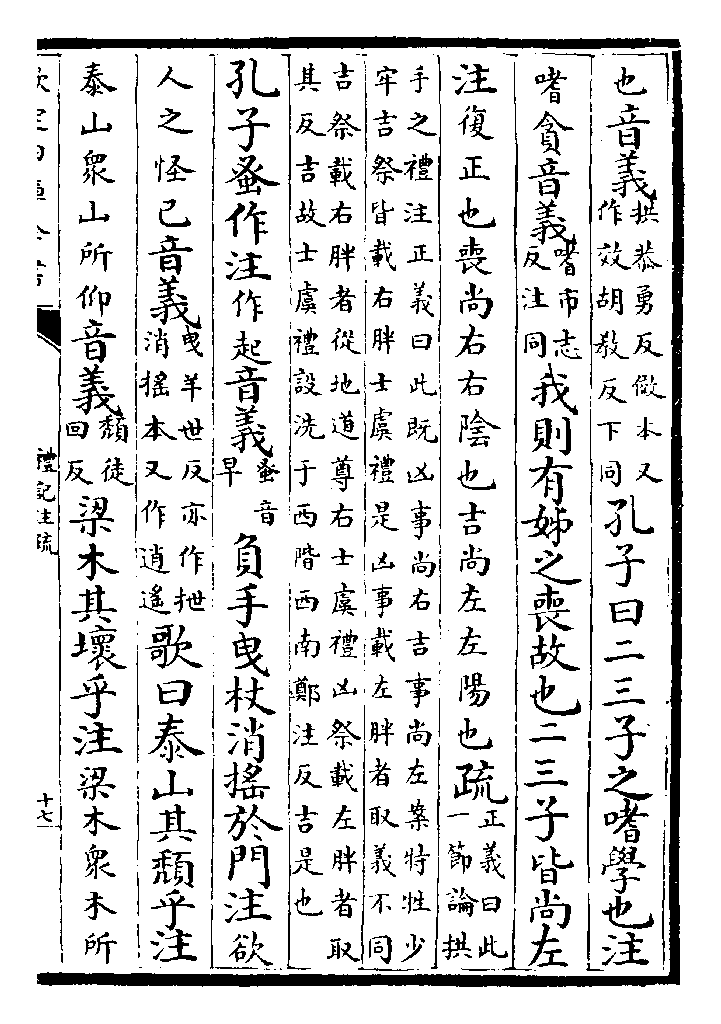 也音義拱恭勇反傚本又作效胡教反下同孔子曰二三子之嗜學也注
嗜貪音義嗜市志反注同我則有姊之喪故也二三子皆尚左
注復正也喪尚右右陰也吉尚左左陽也疏正義曰此一節論拱
手之禮注正義曰此既凶事尚右吉事尚左案特牲少
牢吉祭皆載右胖士虞禮是凶事載左胖者取義不同
吉祭載右胖者從地道尊右士虞禮凶祭載左胖者取
其反吉故士虞禮設洗于西階西南鄭注反吉是也
孔子蚤作注作起音義蚤音早負手曳杖消搖於門注欲
人之怪己音義曳羊世反亦作抴消搖本又作逍遙歌曰泰山其頹乎注
泰山衆山所仰音義頹徒回反梁木其壞乎注梁木衆木所
欽定四庫全書
禮記注疏
十七